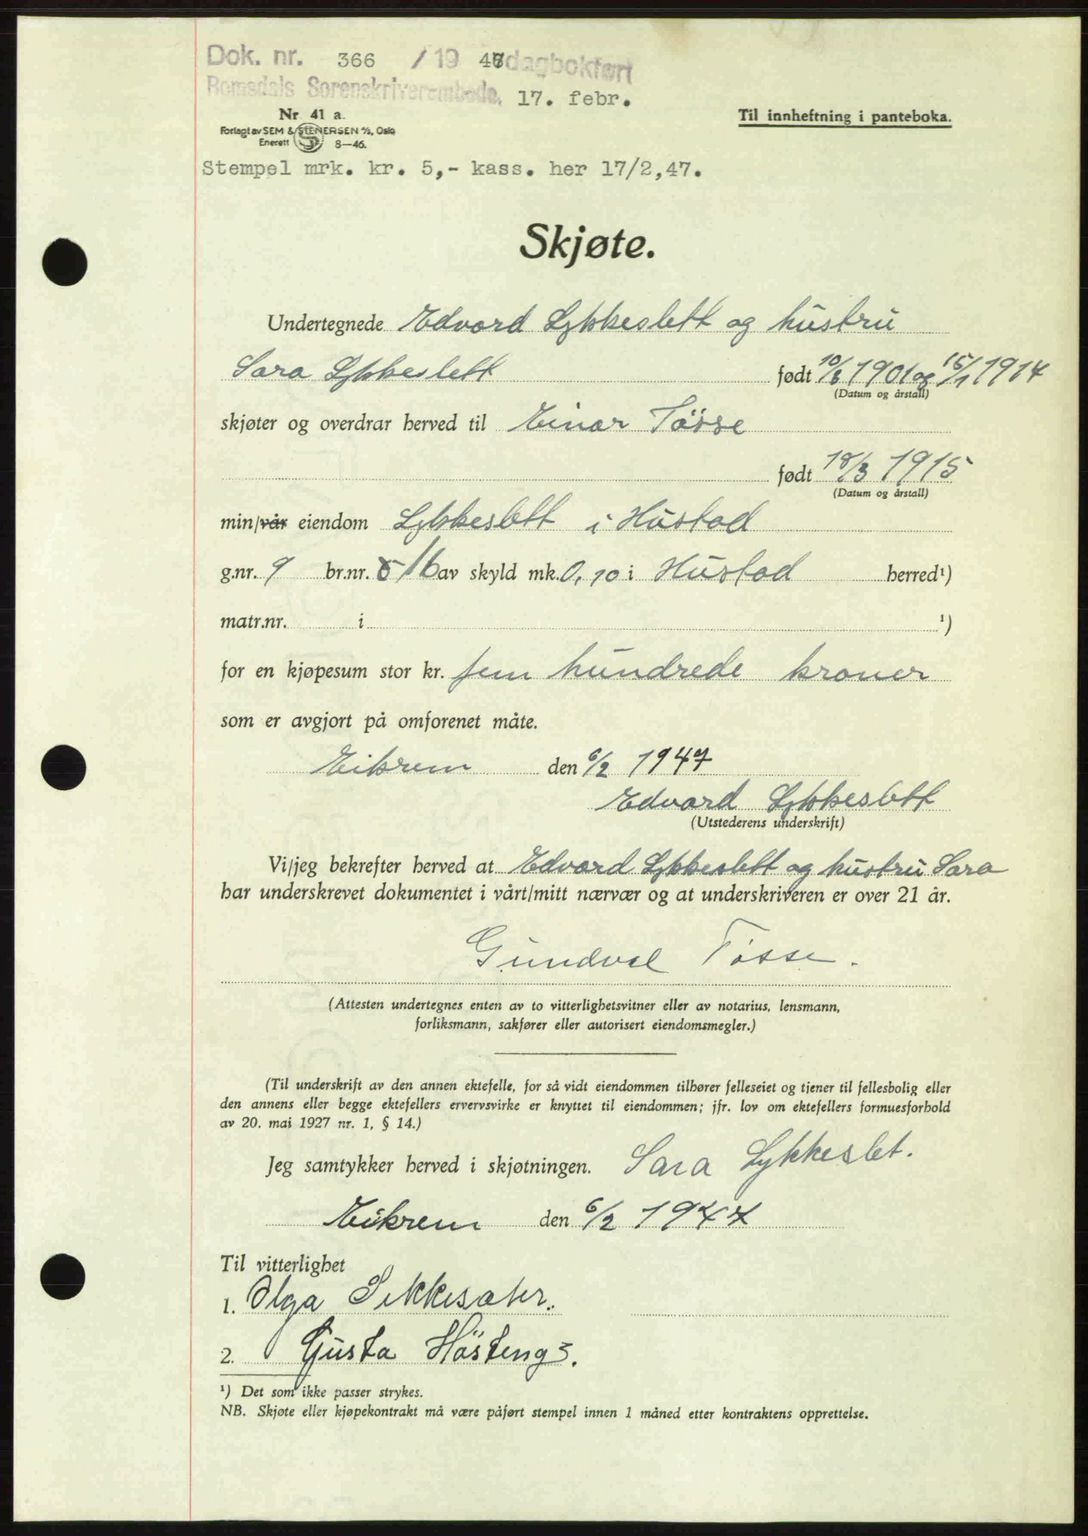 Dok. nr. 366 /19 47 dagbokført
Romsdals Sorenskriverembede, 17. febr.
Nr 41 a.
Til innheftning i panteboka.
Forlagt av SEM & STENERSEN A/S, Oslo
Enerett 8—46.
Stempel mrk. kr. 5,- kass. her 17/2,47.
Skjøte.
Undertegnede Edvard Lykkeslett og hustru
Sara Lykkeslett født 10/8 1901 og 15/1 1914
(Datum og årstall)
skjøter og overdrar herved til Einar Tøsse
født 18/3 1915
(Datum og årstall)
min/vår eiendom Lykkeslett i Hustad
g.nr. 9 br.nr. 16 av skyld mk. 0,10 i Hustad herred¹)
matr.nr. i ¹)
for en kjøpesum stor kr. fem hundrede kroner
som er avgjort på omforenet måte.
Eikrem den 6/2 1947
Edvard Lykkeslett
(Utstederens underskrift)
Vi/jeg bekrefter herved at Edvard Lykkeslett og hustru Sara
har underskrevet dokumentet i vårt/mitt nærvær og at underskriveren er over 21 år.
Gundval Tøsse.
(Attesten undertegnes enten av to vitterlighetsvitner eller av notarius, lensmann,
forliksmann, sakfører eller autorisert eiendomsmegler.)
(Til underskrift av den annen ektefelle, for så vidt eiendommen tilhører felleseiet og tjener til fellesbolig eller
den annens eller begge ektefellers ervervsvirke er knyttet til eiendommen; jfr. lov om ektefellers formuesforhold
av 20. mai 1927 nr. 1, § 14.)
Jeg samtykker herved i skjøtningen. Sara Lykkeslet.
Eikrem den 6/2 1947
Til vitterlighet
1. Olga Sikkesæter.
2. Gusta Hösteng.
¹) Det som ikke passer strykes.
NB. Skjøte eller kjøpekontrakt må være påført stempel innen 1 måned etter kontraktens opprettelse.